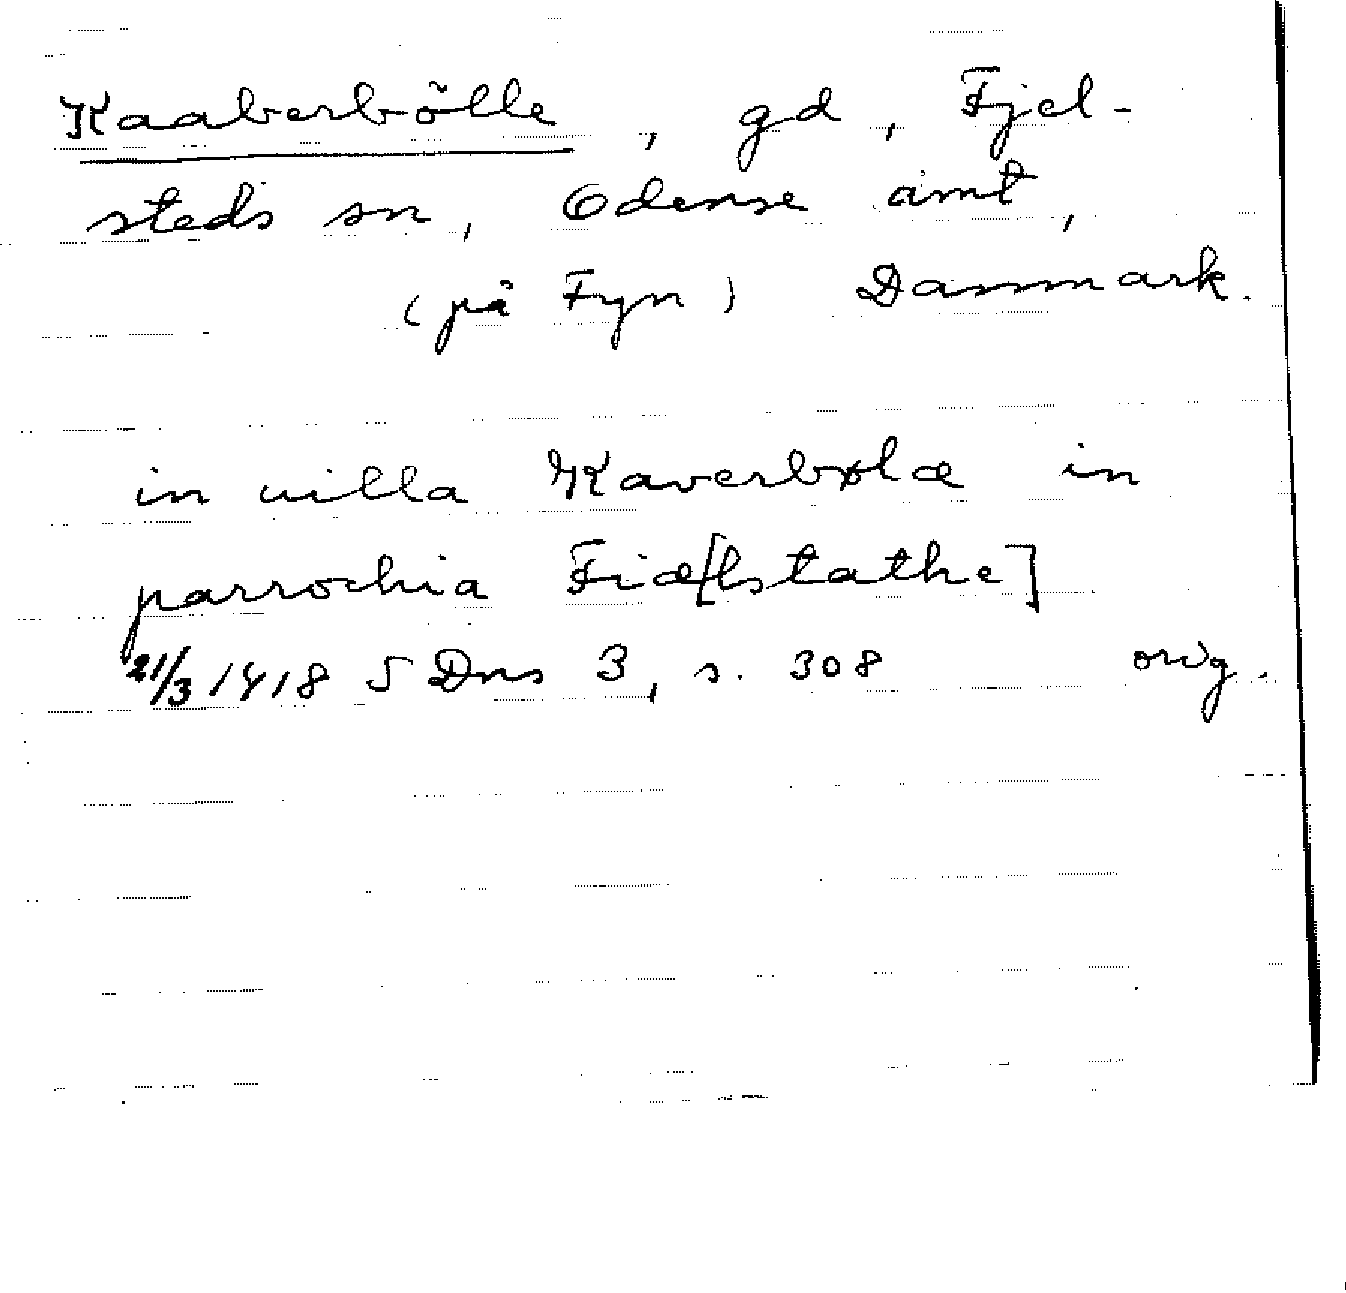 Kaaberbölle, gd, Fjel-
steds sn, Odense amt,
(på Fyn) Danmark.
in villa Kaverbølæ in
parrochia Fiæ[lstathe]
21/3 1418 SDns 3, s. 308 orig.